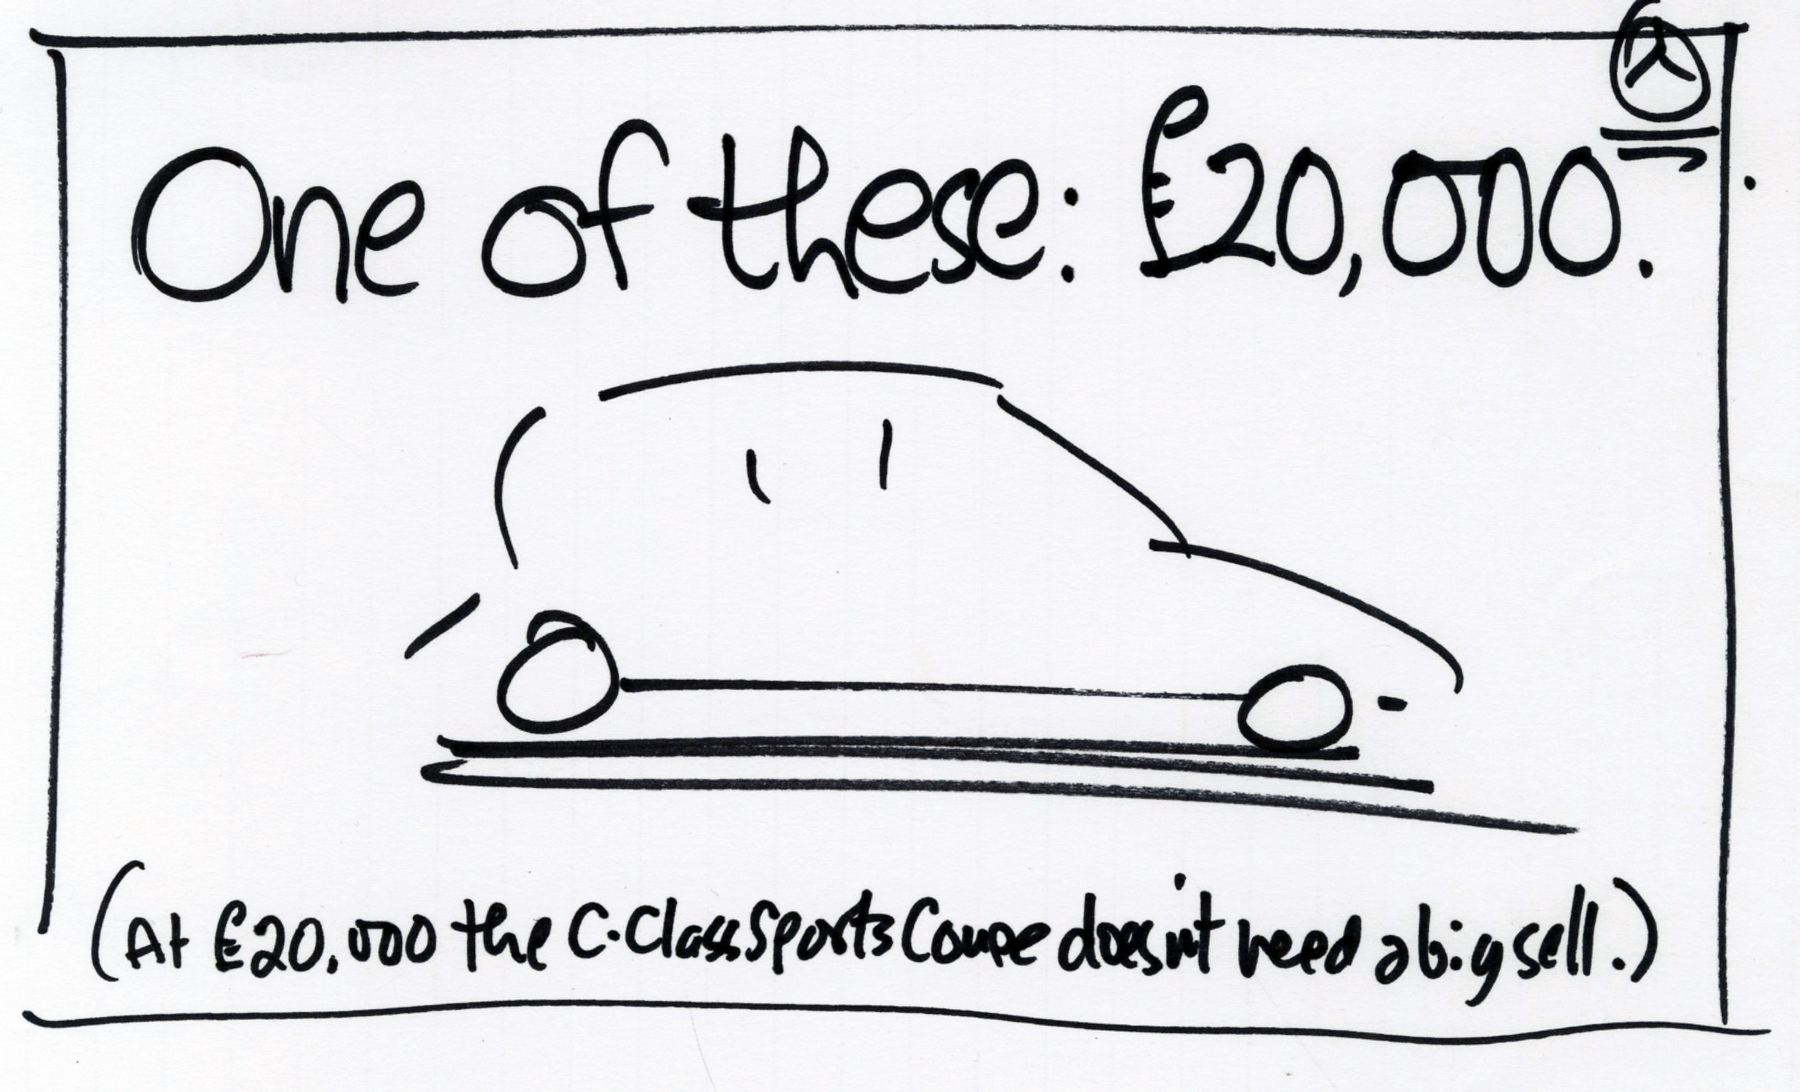 One of these: £20,000.
(At £20,000 the C-Class Sports Coupe doesn't need a big sell.)